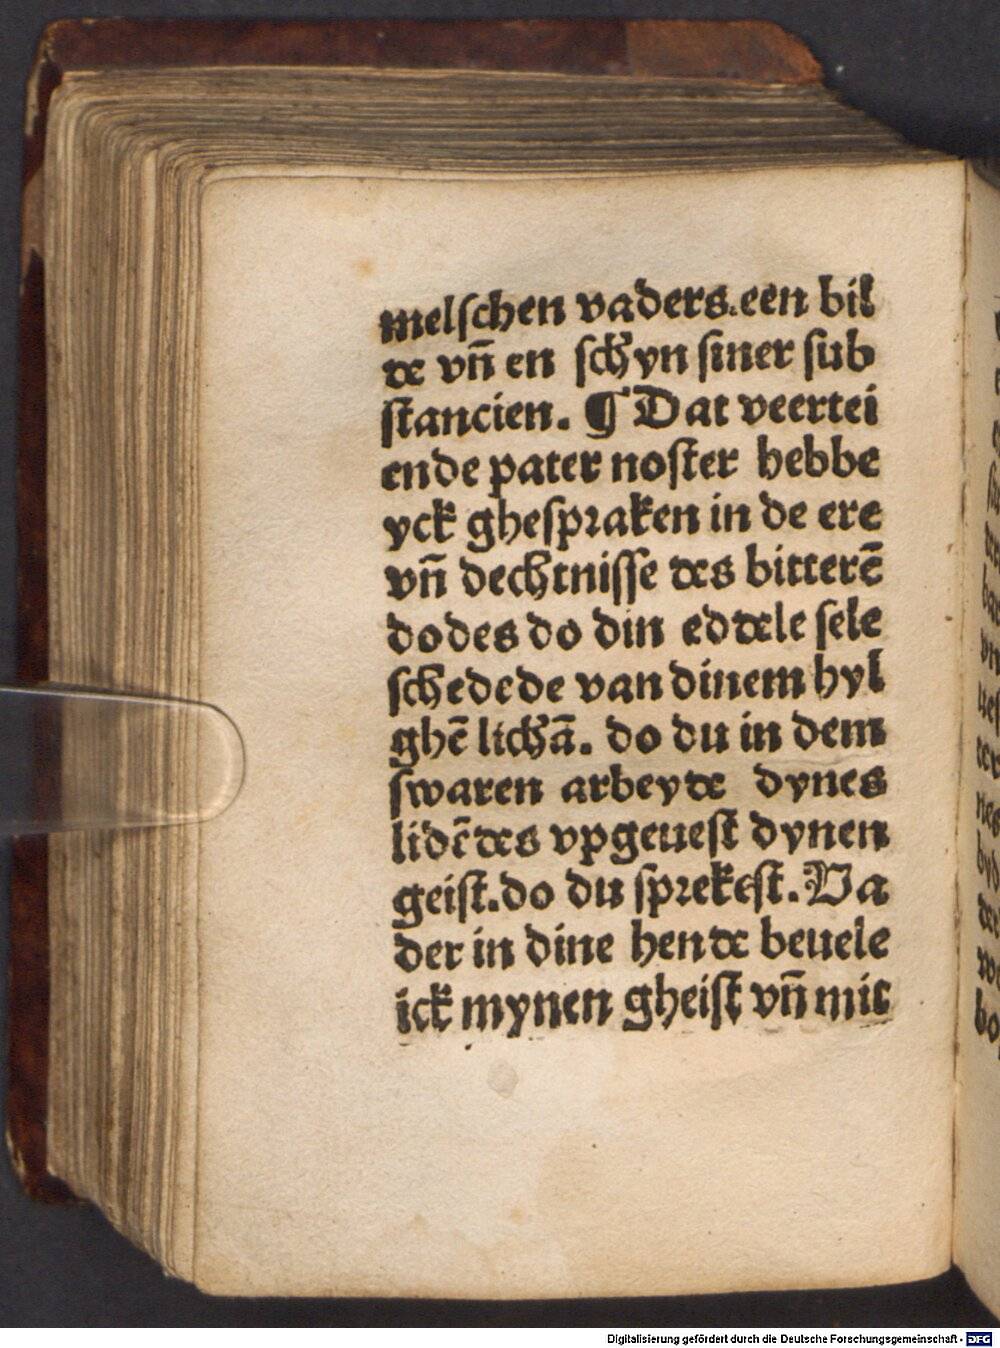 melſchen vaders.een bil
de vn̄ en ſchyn ſiner ſub
ſtancien. ¶ Dat veertei
ende pater noſter hebbe
yck gheſpꝛaken in de ere
vn̄ dechtniſſe des bitterē
dodes do din eddele ſele
ſchedede van dinem hyl
ghē lichā. do du in dem
ſwaren arbeyde dynes
lidēdes vpgeueſt dynen
geiſt.do du ſpꝛekeſt. Va
der in dine hende beuele
ick mynen gheiſt vn̄ mit
Digitalisierung gefördert durch die Deutsche Forschungsgemeinschaft - DFG